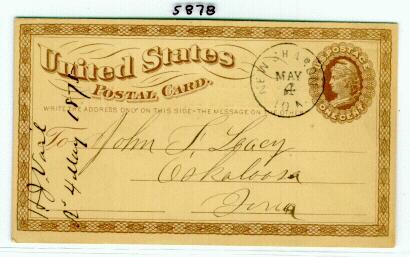 5878
United States
Postal Card.
WRITE THE ADDRESS ONLY ON THIS SIDE - THE MESSAGE ON THE OTHER
U.S. POSTAGE
ONE CENT
NEW SHARON
MAY
4
IOWA
To John F. Lacey
Oskaloosa
Iowa
4 May 1874